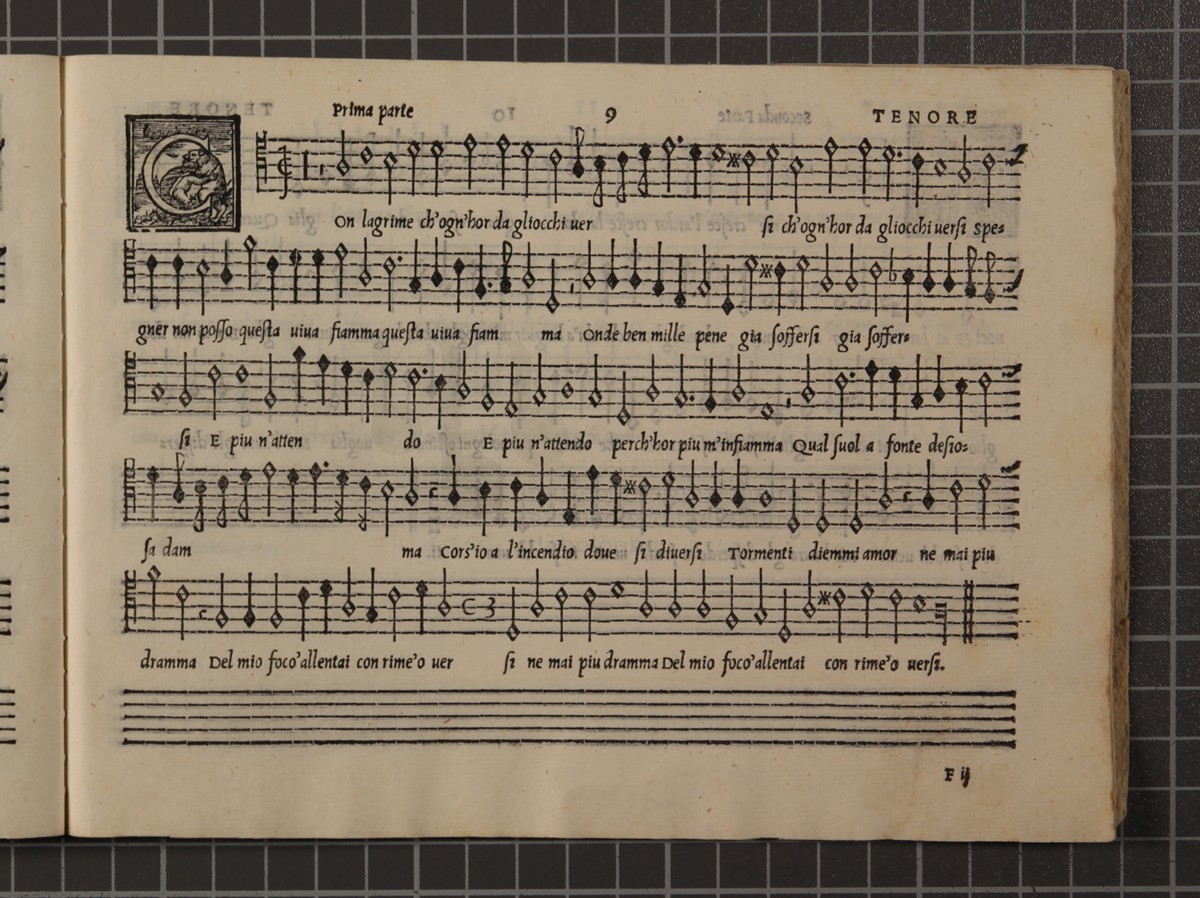 Prima parte 9 TENORE
COn lagrime ch'ogn'hor da gliocchi uer si ch'ogn'hor da gliocchi uersi spe=
gner non posso questa uiua fiamma questa uiua fiam ma Onde ben mille pene gia soffersi gia soffer=
si E piu n'atten do E piu n'attendo perch'hor piu m'infiamma Qual suol a fonte desio=
sa dam ma Cors'io a l'incendio doue si diuersi Tormenti diemmi amor ne mai piu
dramma Del mio foco'allentai con rime'o uer si ne mai piu dramma Del mio foco'allentai con rime'o uersi.
F ij